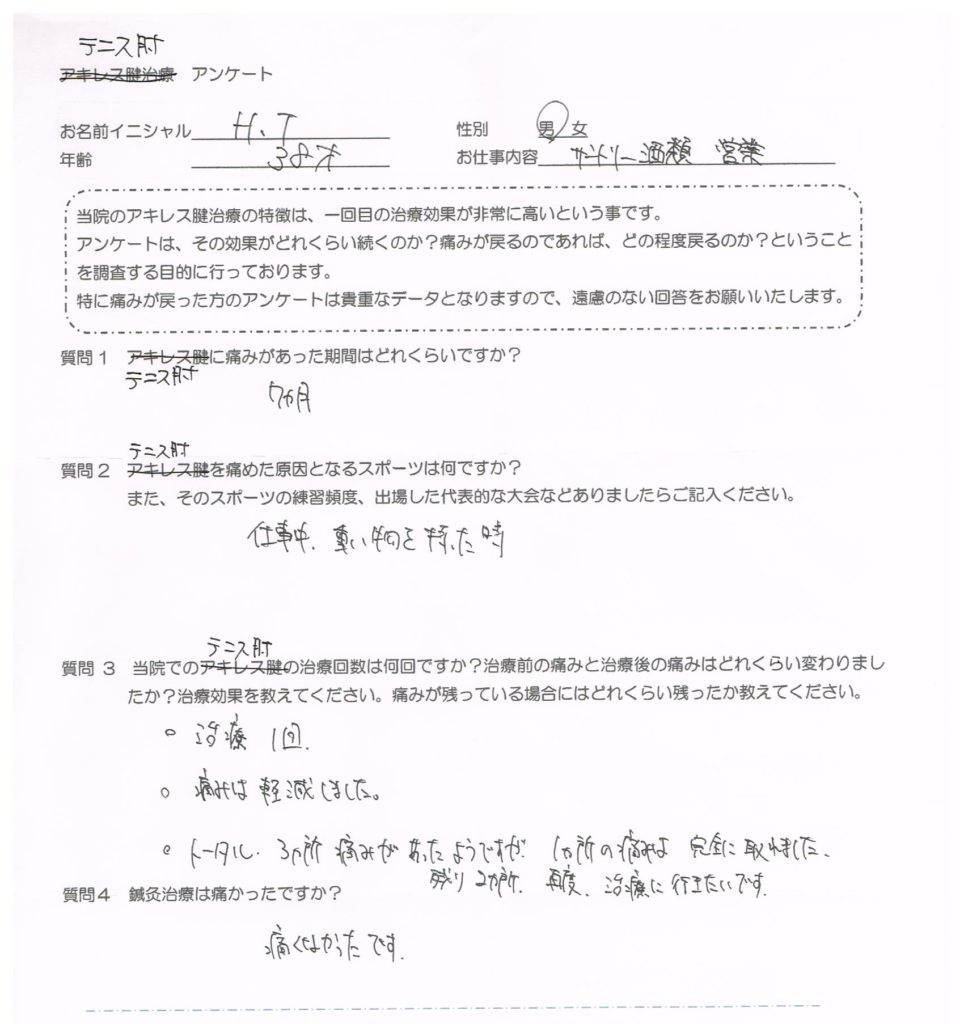 テニス肘
アキレス腱治療 アンケート
お名前イニシャル H.T 性別 男 女
年齢 38才 お仕事内容 サントリー酒類 営業
当院のアキレス腱治療の特徴は、一回目の治療効果が非常に高いという事です。
アンケートは、その効果がどれくらい続くのか？痛みが戻るのであれば、どの程度戻るのか？ということ
を調査する目的に行っております。
特に痛みが戻った方のアンケートは貴重なデータとなりますので、遠慮のない回答をお願いいたします。
質問1 アキレス腱に痛みがあった期間はどれくらいですか？
テニス肘
7ヵ月
テニス肘
質問2 アキレス腱を痛めた原因となるスポーツは何ですか？
また、そのスポーツの練習頻度、出場した代表的な大会などありましたらご記入ください。
仕事中、重い物を持った時
テニス肘
質問 3 当院でのアキレス腱の治療回数は何回ですか？治療前の痛みと治療後の痛みはどれくらい変わりまし
たか？治療効果を教えてください。痛みが残っている場合にはどれくらい残ったか教えてください。
○ 治療 1回.
○ 痛みは軽減しました。
○ トータル. 3ヵ所 痛みがあったようですが 1ヵ所の痛みは 完全に取れました、
残り 2ヵ所、再度、治療に行きたいです.
質問4 鍼灸治療は痛かったですか？
痛くなかったです.